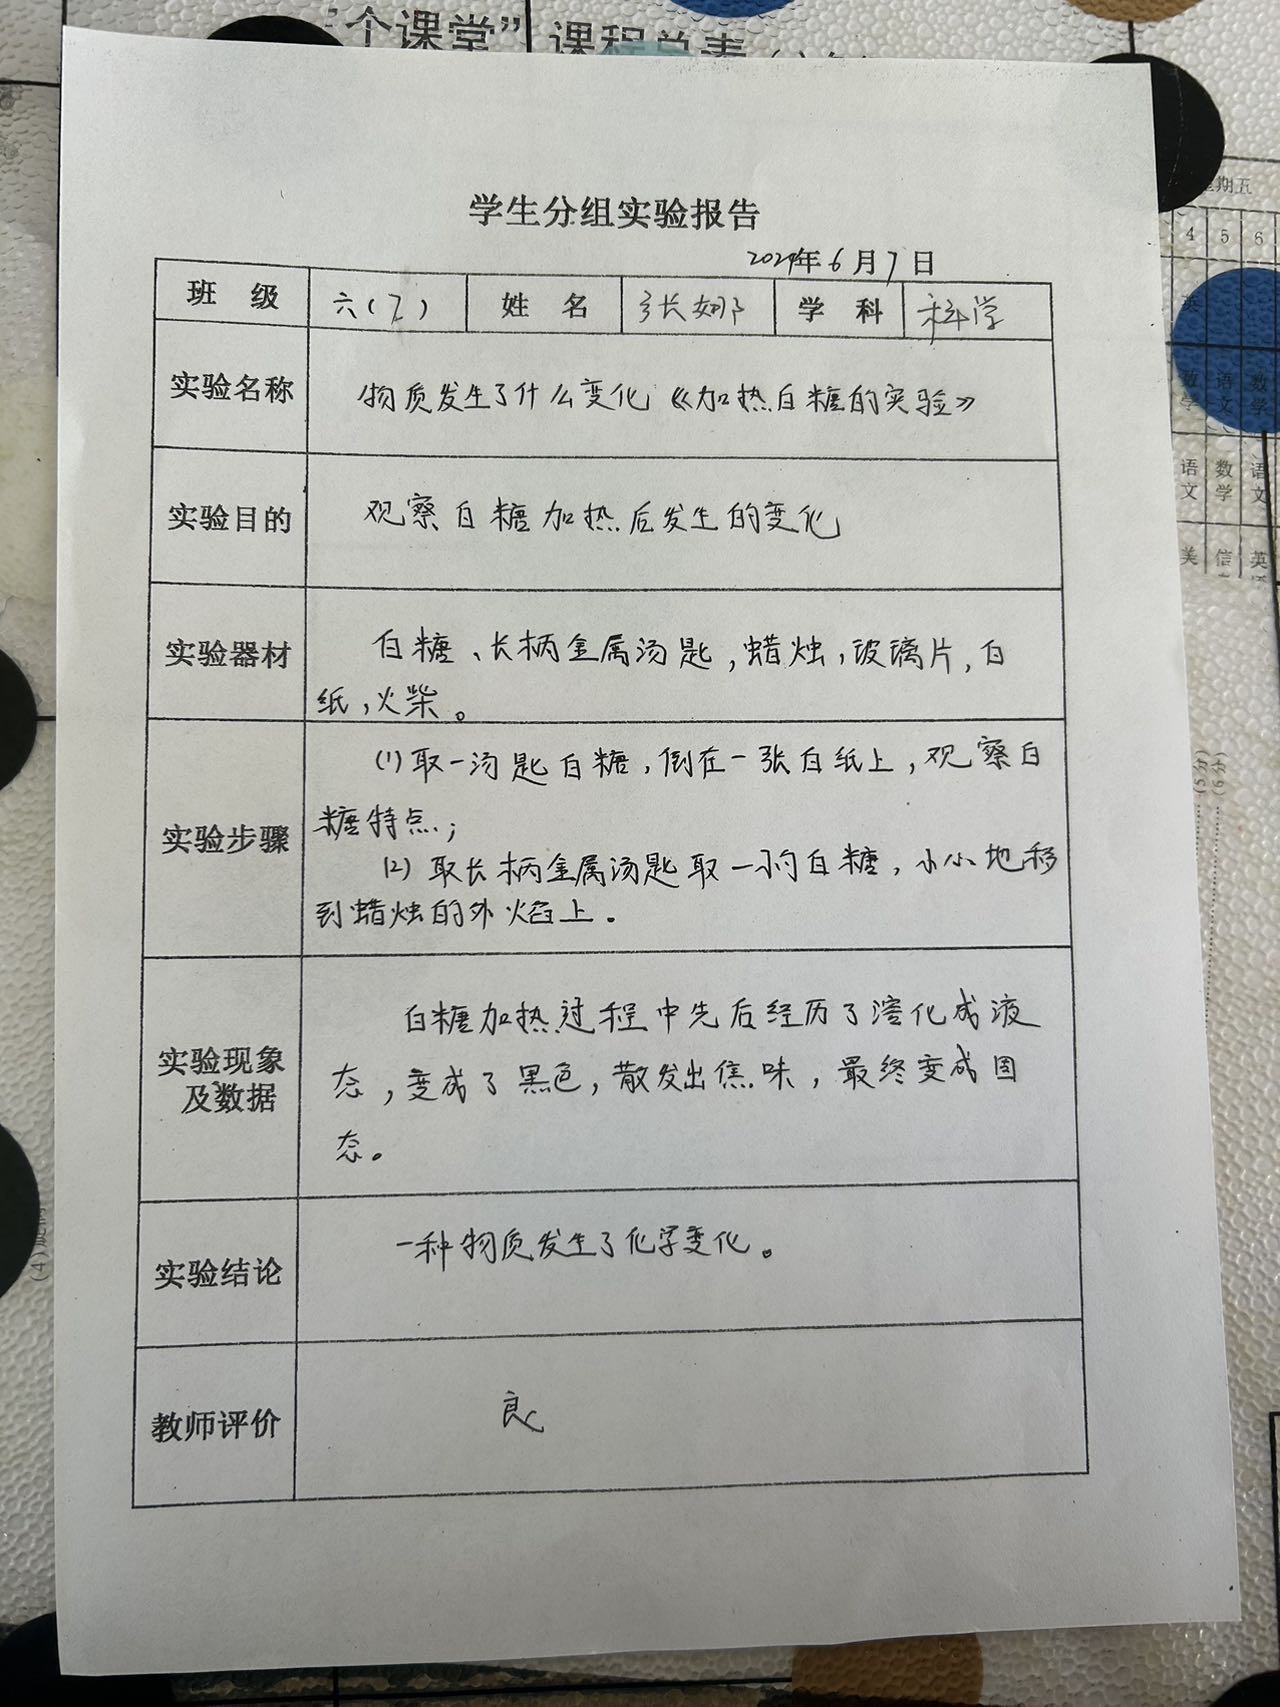 个课堂”课程总表
学生分组实验报告
2024年6月7日
班 级 六(7) 姓 名 张娜 学 科 科学
实验名称 物质发生了什么变化《加热白糖的实验》
实验目的 观察白糖加热后发生的变化
实验器材 白糖、长柄金属汤匙,蜡烛,玻璃片,白
纸,火柴。
(1)取一汤匙白糖,倒在一张白纸上,观察白
糖特点;
实验步骤
(2)取长柄金属汤匙取一小勺白糖,小小地移
到蜡烛的外焰上.
白糖加热过程中先后经历了溶化成液
实验现象
及数据
态,变成了黑色,散发出焦味,最终变成固
态。
实验结论 一种物质发生了化学变化。
教师评价 良
星期五
4 5 6
英
数学 语文 数学
语文 数学 语文
美 信 英
(5分)
(6分)